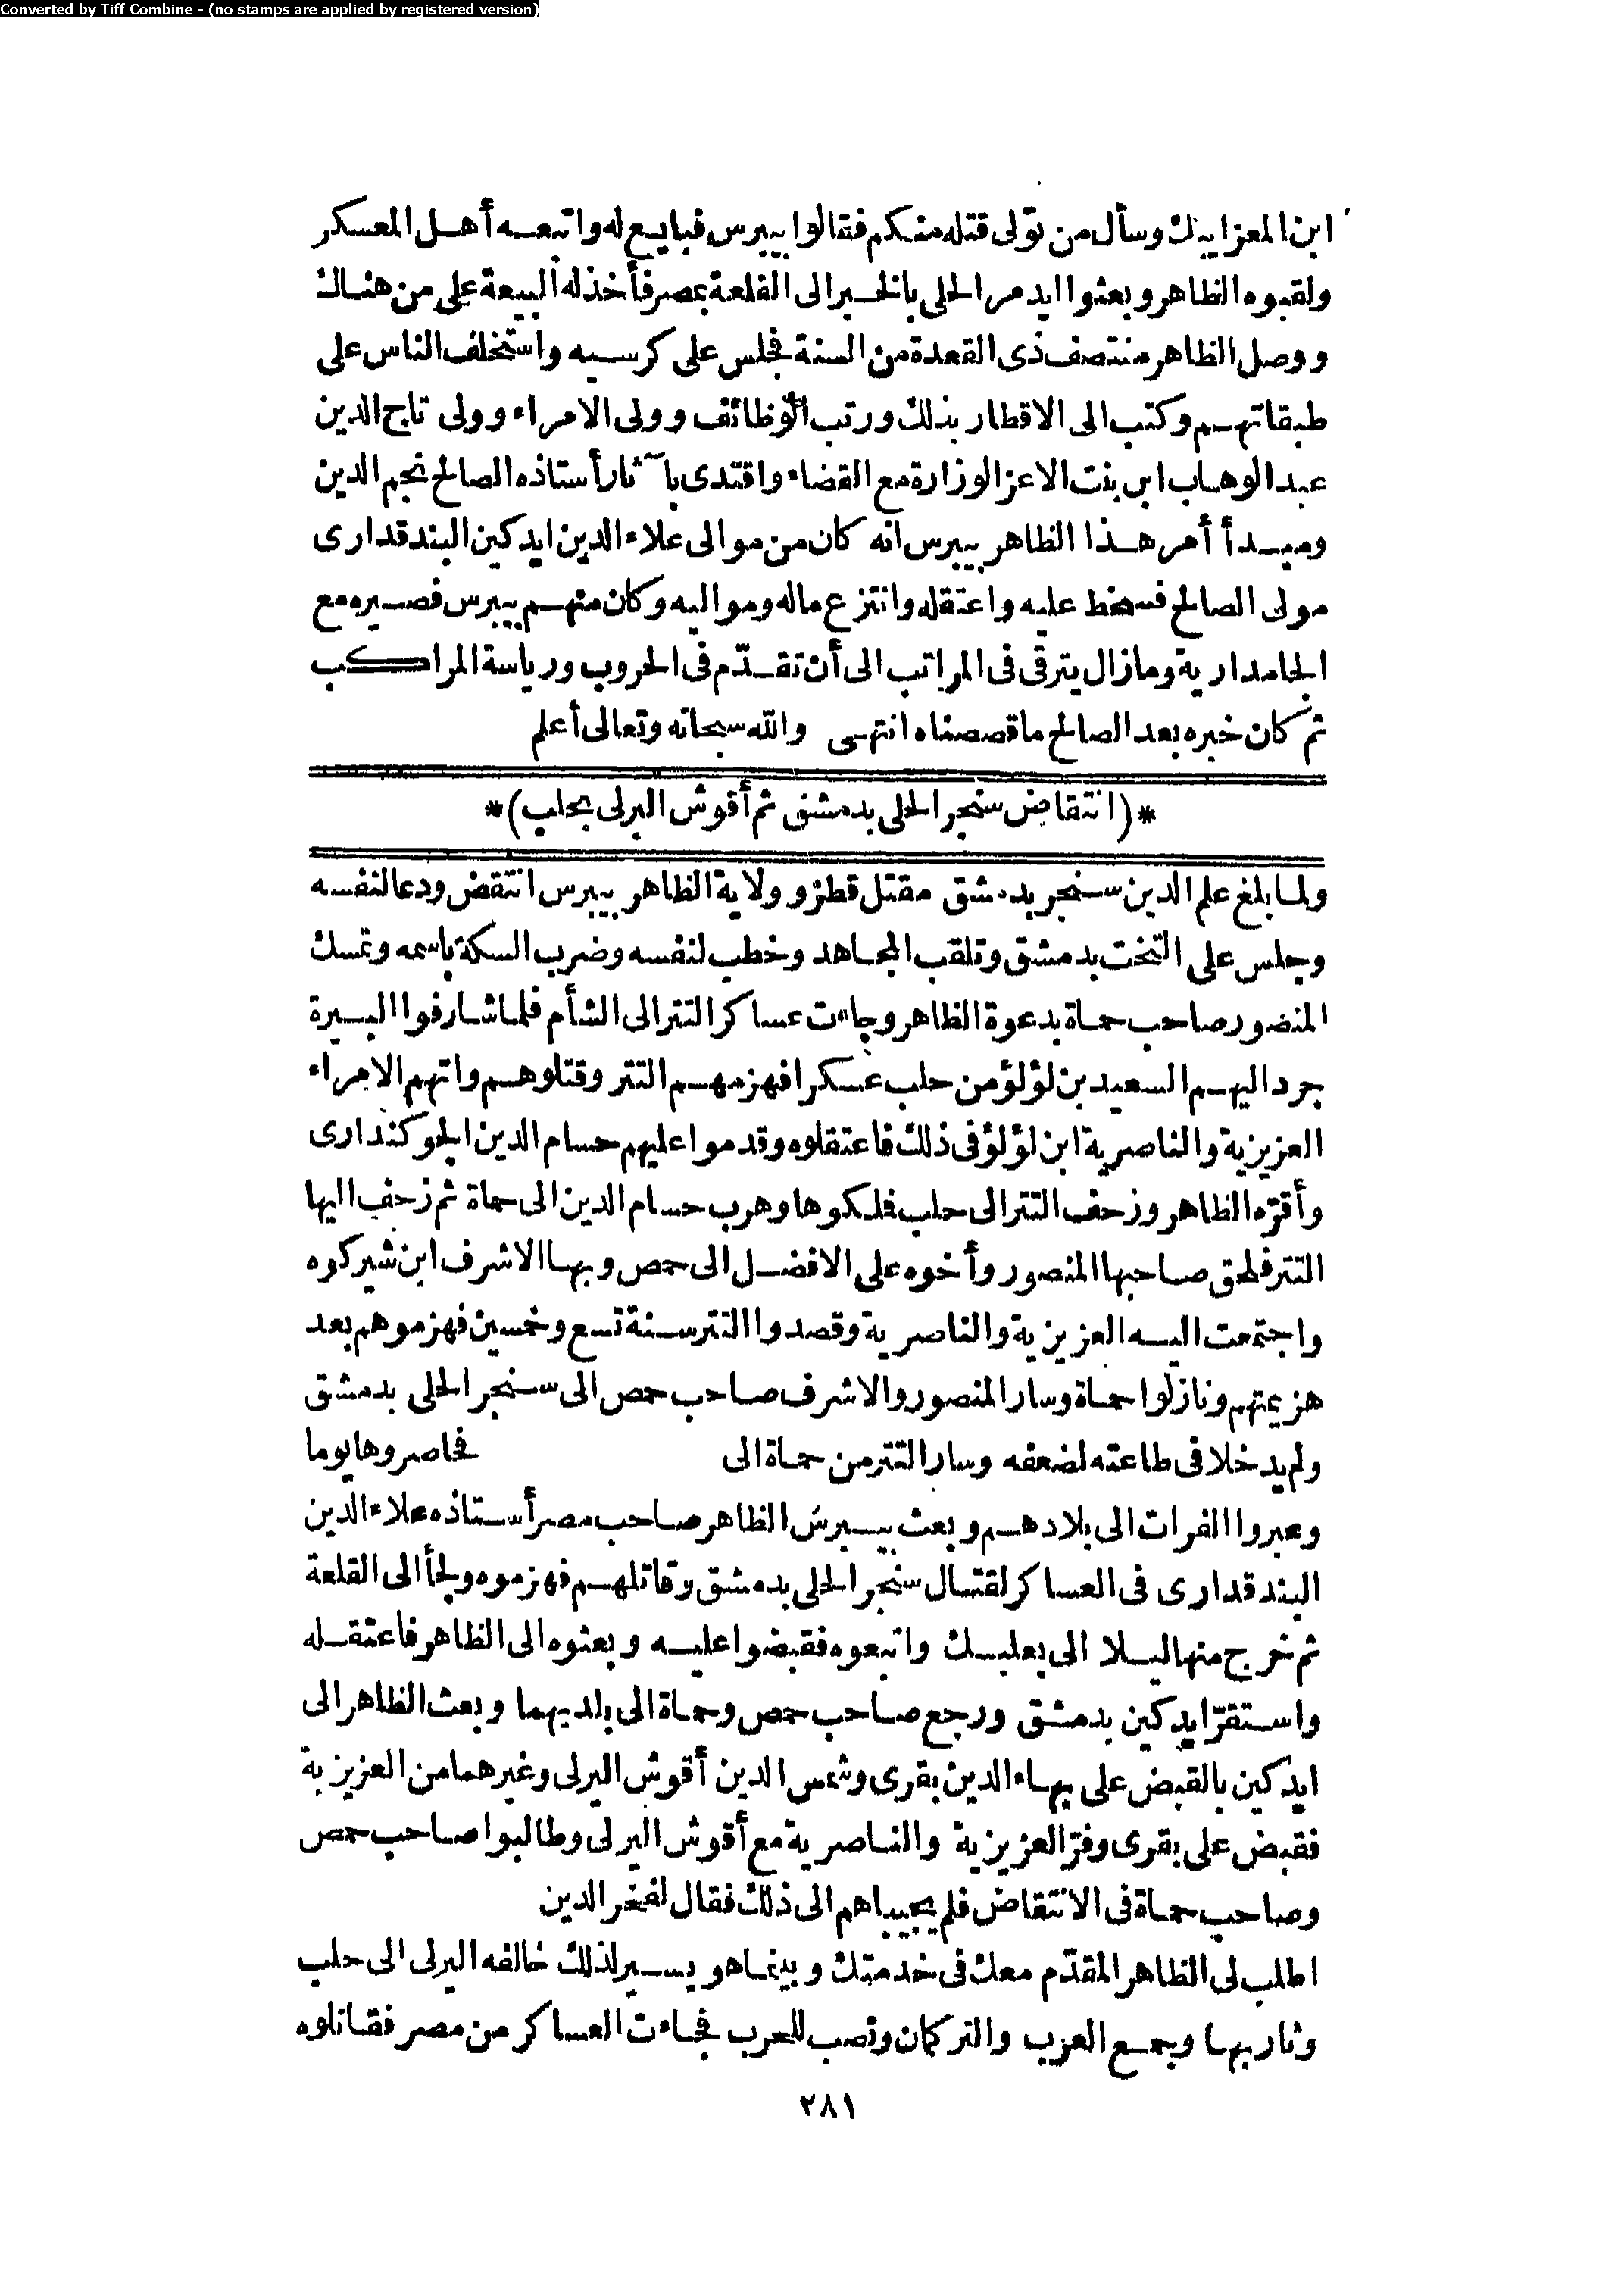 Converted by Tiff Combine - (no stamps are applied by registered version)
ابن المعز ايبك وسأل من تولى قتله منكم فقالوا بيبرس فبايع له واتبعه أهل المعسكر
ولقبوه الظاهر وبعثوا ايدمر الحلى بالخبر الى القلعة بمصر فأخذ له البيعة على من هناك
ووصل الظاهر منتصف ذى القعدة من السنة فجلس على كرسيه واستخلف الناس على
طبقاتهم وكتب الى الاقطار بذلك ورتب الوظائف وولى الامراء وولى تاج الدين
عبد الوهاب ابن بنت الاعز الوزارة مع القضاء واقتدى بآثار أستاذه الصالح نجم الدين
ومبدأ أمر هذا الظاهر بيبرس انه كان من موالى علاء الدين ايدكين البندقدارى
مولى الصالح فسخط عليه واعتقله وانتزع ماله ومواليه وكان منهم بيبرس فصيره مع
الجامدارية ومازال يترقى فى المراتب الى أن تقدّم فى الحروب ورياسة المراكب
ثم كان خبره بعد الصالح ما قصصناه انتهى والله سبحانه وتعالى أعلم
*(انتقاض سنجر الحلى بدمشق ثم أقوش البرلى بحلب)*
ولما بلغ علم الدين سنجر بدمشق مقتل قطز وولاية الظاهر بيبرس انتقض ودعا لنفسه
وجلس على التخت بدمشق وتلقب المجاهد وخطب لنفسه وضرب السكة باسمه وتمسك
المنصور صاحب حماة بدعوة الظاهر وجاءت عساكر التتر الى الشأم فلما شارفوا البيرة
جرد اليهم السعيد بن لؤلؤ من حلب عسكرا فهزمهم التتر وقتلوهم واتهم الامراء
العزيزية والناصرية ابن لؤلؤ فى ذلك فاعتقلوه وقدموا عليهم حسام الدين الجوكندارى
وأقرّه الظاهر وزحف التتر الى حلب فلكوها وهرب حسام الدين الى حماة ثم زحف اليها
التتر فلحق صاحبها المنصور وأخوه على الافضل الى حمص وبها الاشرف ابن شيركوه
واجتمعت اليه العزيزية والناصرية وقصدوا التتر سنة تسع وخمسين فهزموهم بعد
هزيمتهم ونازلوا حماة وسار المنصور والاشرف صاحب حمص الى سنجر الحلى بدمشق
ولم يدخلا فى طاعته لضعفه وسار التتر من حماة الى فحاصروها يوما
وعبروا الفرات الى بلادهم وبعث بيبرس الظاهر صاحب مصر أستاذه علاء الدين
البندقدارى فى العساكر لقتال سنجر الحلى بدمشق وقاتلهم فهزموه ولجأ الى القلعة
ثم خرج منها ليلا الى بعلبك واتبعوه فقبضوا عليه وبعثوه الى الظاهر فاعتقله
واستقرّ ايدكين بدمشق ورجع صاحب حمص وحماة الى بلديهما وبعث الظاهر الى
ايدكين بالقبض على بهاء الدين بقرى وشمس الدين أقوش البرلى وغيرهما من العزيزية
فقبض على بقرى وفرّ العزيزية والناصرية مع أقوش البرلى وطالبوا صاحب حمص
وصاحب حماة فى الانتقاض فلم يجيباهم الى ذلك فقال لفخر الدين
اطلب لى الظاهر المقدّم معك فى خدمتك وبينما هو يسير لذلك خالفه البرلى الى حلب
وثار بها وجمع العرب والتركمان ونصب للحرب فجاءت العساكر من مصر فقاتلوه
٢٨١